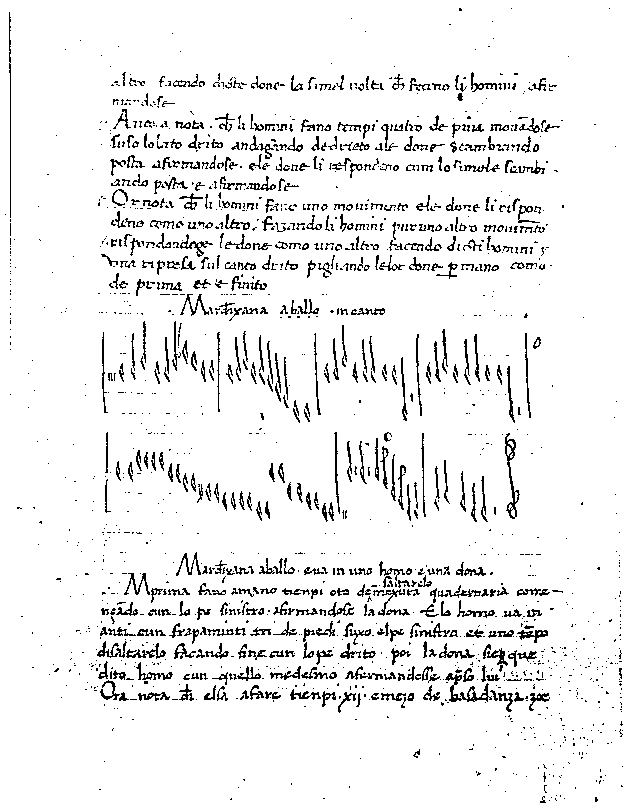 altro facendo diste done la simel volta ch̄ fecino li homini afir
mandose
Ancora nota. ch̄ li homini fano tempi quatro de piva movādose
suso lo lato drito andagando dedrieto ale done scambiando
posta afirmandose. ele done li respondeno cum lo simele scambi
ando posta e afirmandose
Or nota ch̄ li homini fano uno movimento ele done li rispon
deno como uno altro. fazando li homini pur uno altro movimēto
rispondandoge le done como uno altro facendo dicti homini
una ripresa sul canto drito pigliando le lor done p mano como
de prima et e finito
March̄xana aballo in canto
March̄xana aballo. e va in uno homo e una dona.
In prima fano amano tienpi oto de mexura quadernaria come
saltarelo
nçādo cun lo pe sinistro afirmandose la dona E lo homo va in
anti cun frapaminti tri de piedi suxo el pe sinistro et uno tēpo
di saltarelo facando fine cun lo pe drito poi la dona sieque
dito homo cun quello medesmo afermandosse ap̄so lui
Ora nota ch̄ elsa afare tienpi .xii. e mezo de basadanza zoe